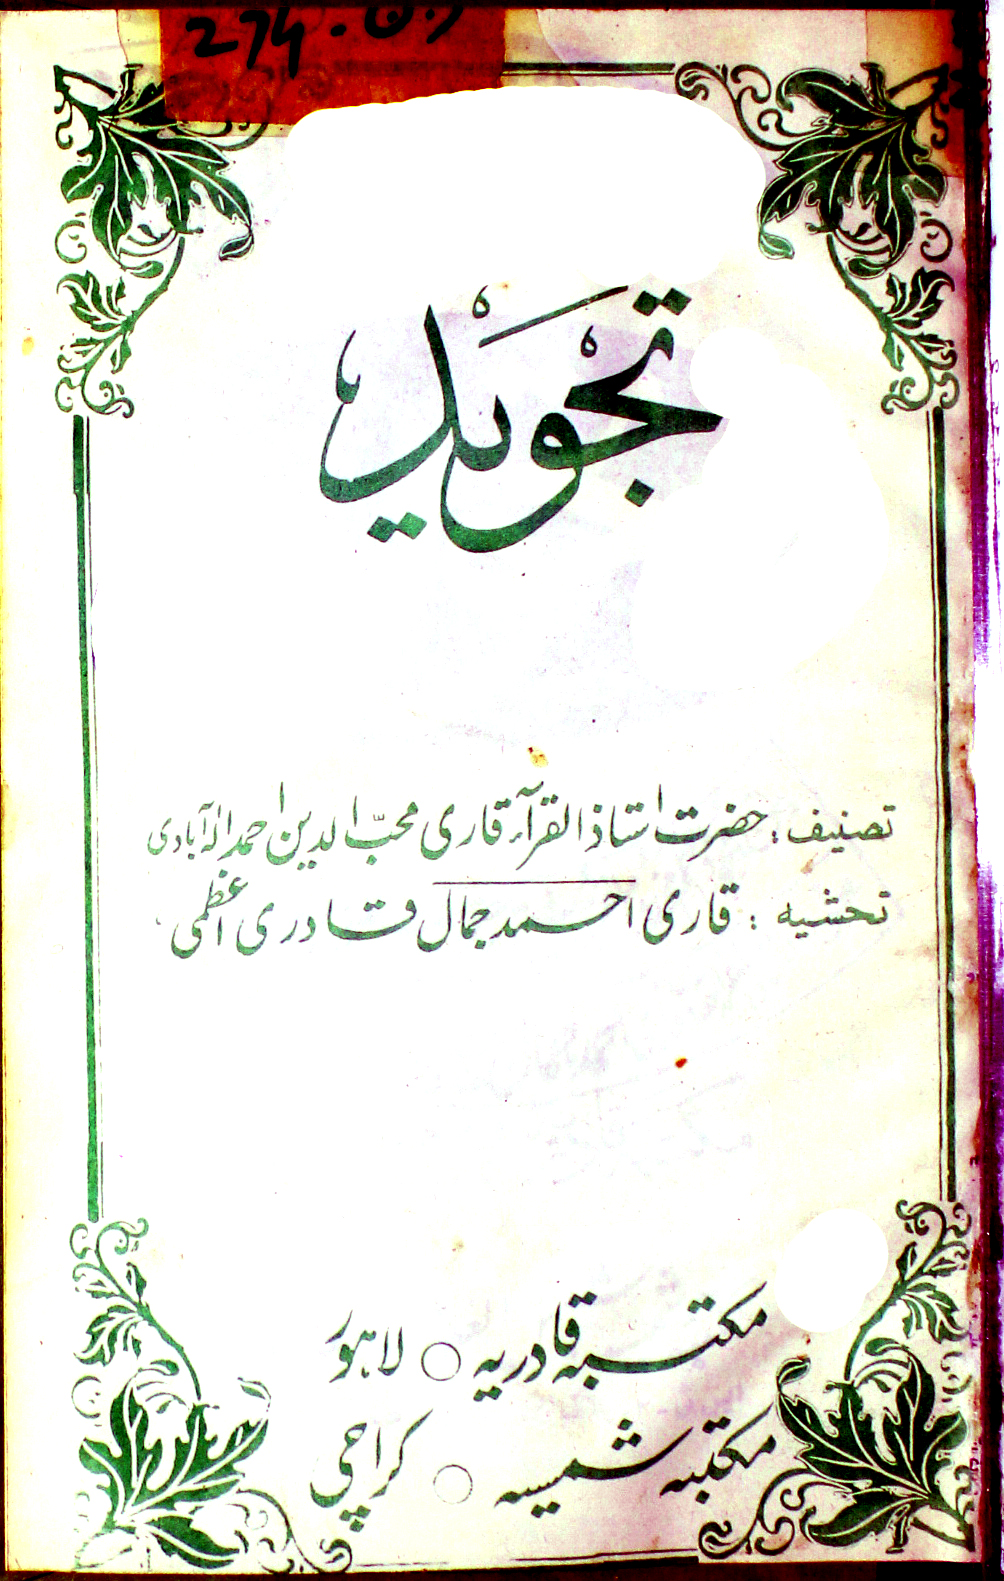 تجوید
تصنیف : حضرت استاذ القرآء قاری محبّ الدین احمد الہ آبادی
تحشیہ : قاری احمد جمال قادری اعظمی
مکتبہ قادریہ ○ لاہور
مکتبہ شمسیہ ○ کراچی